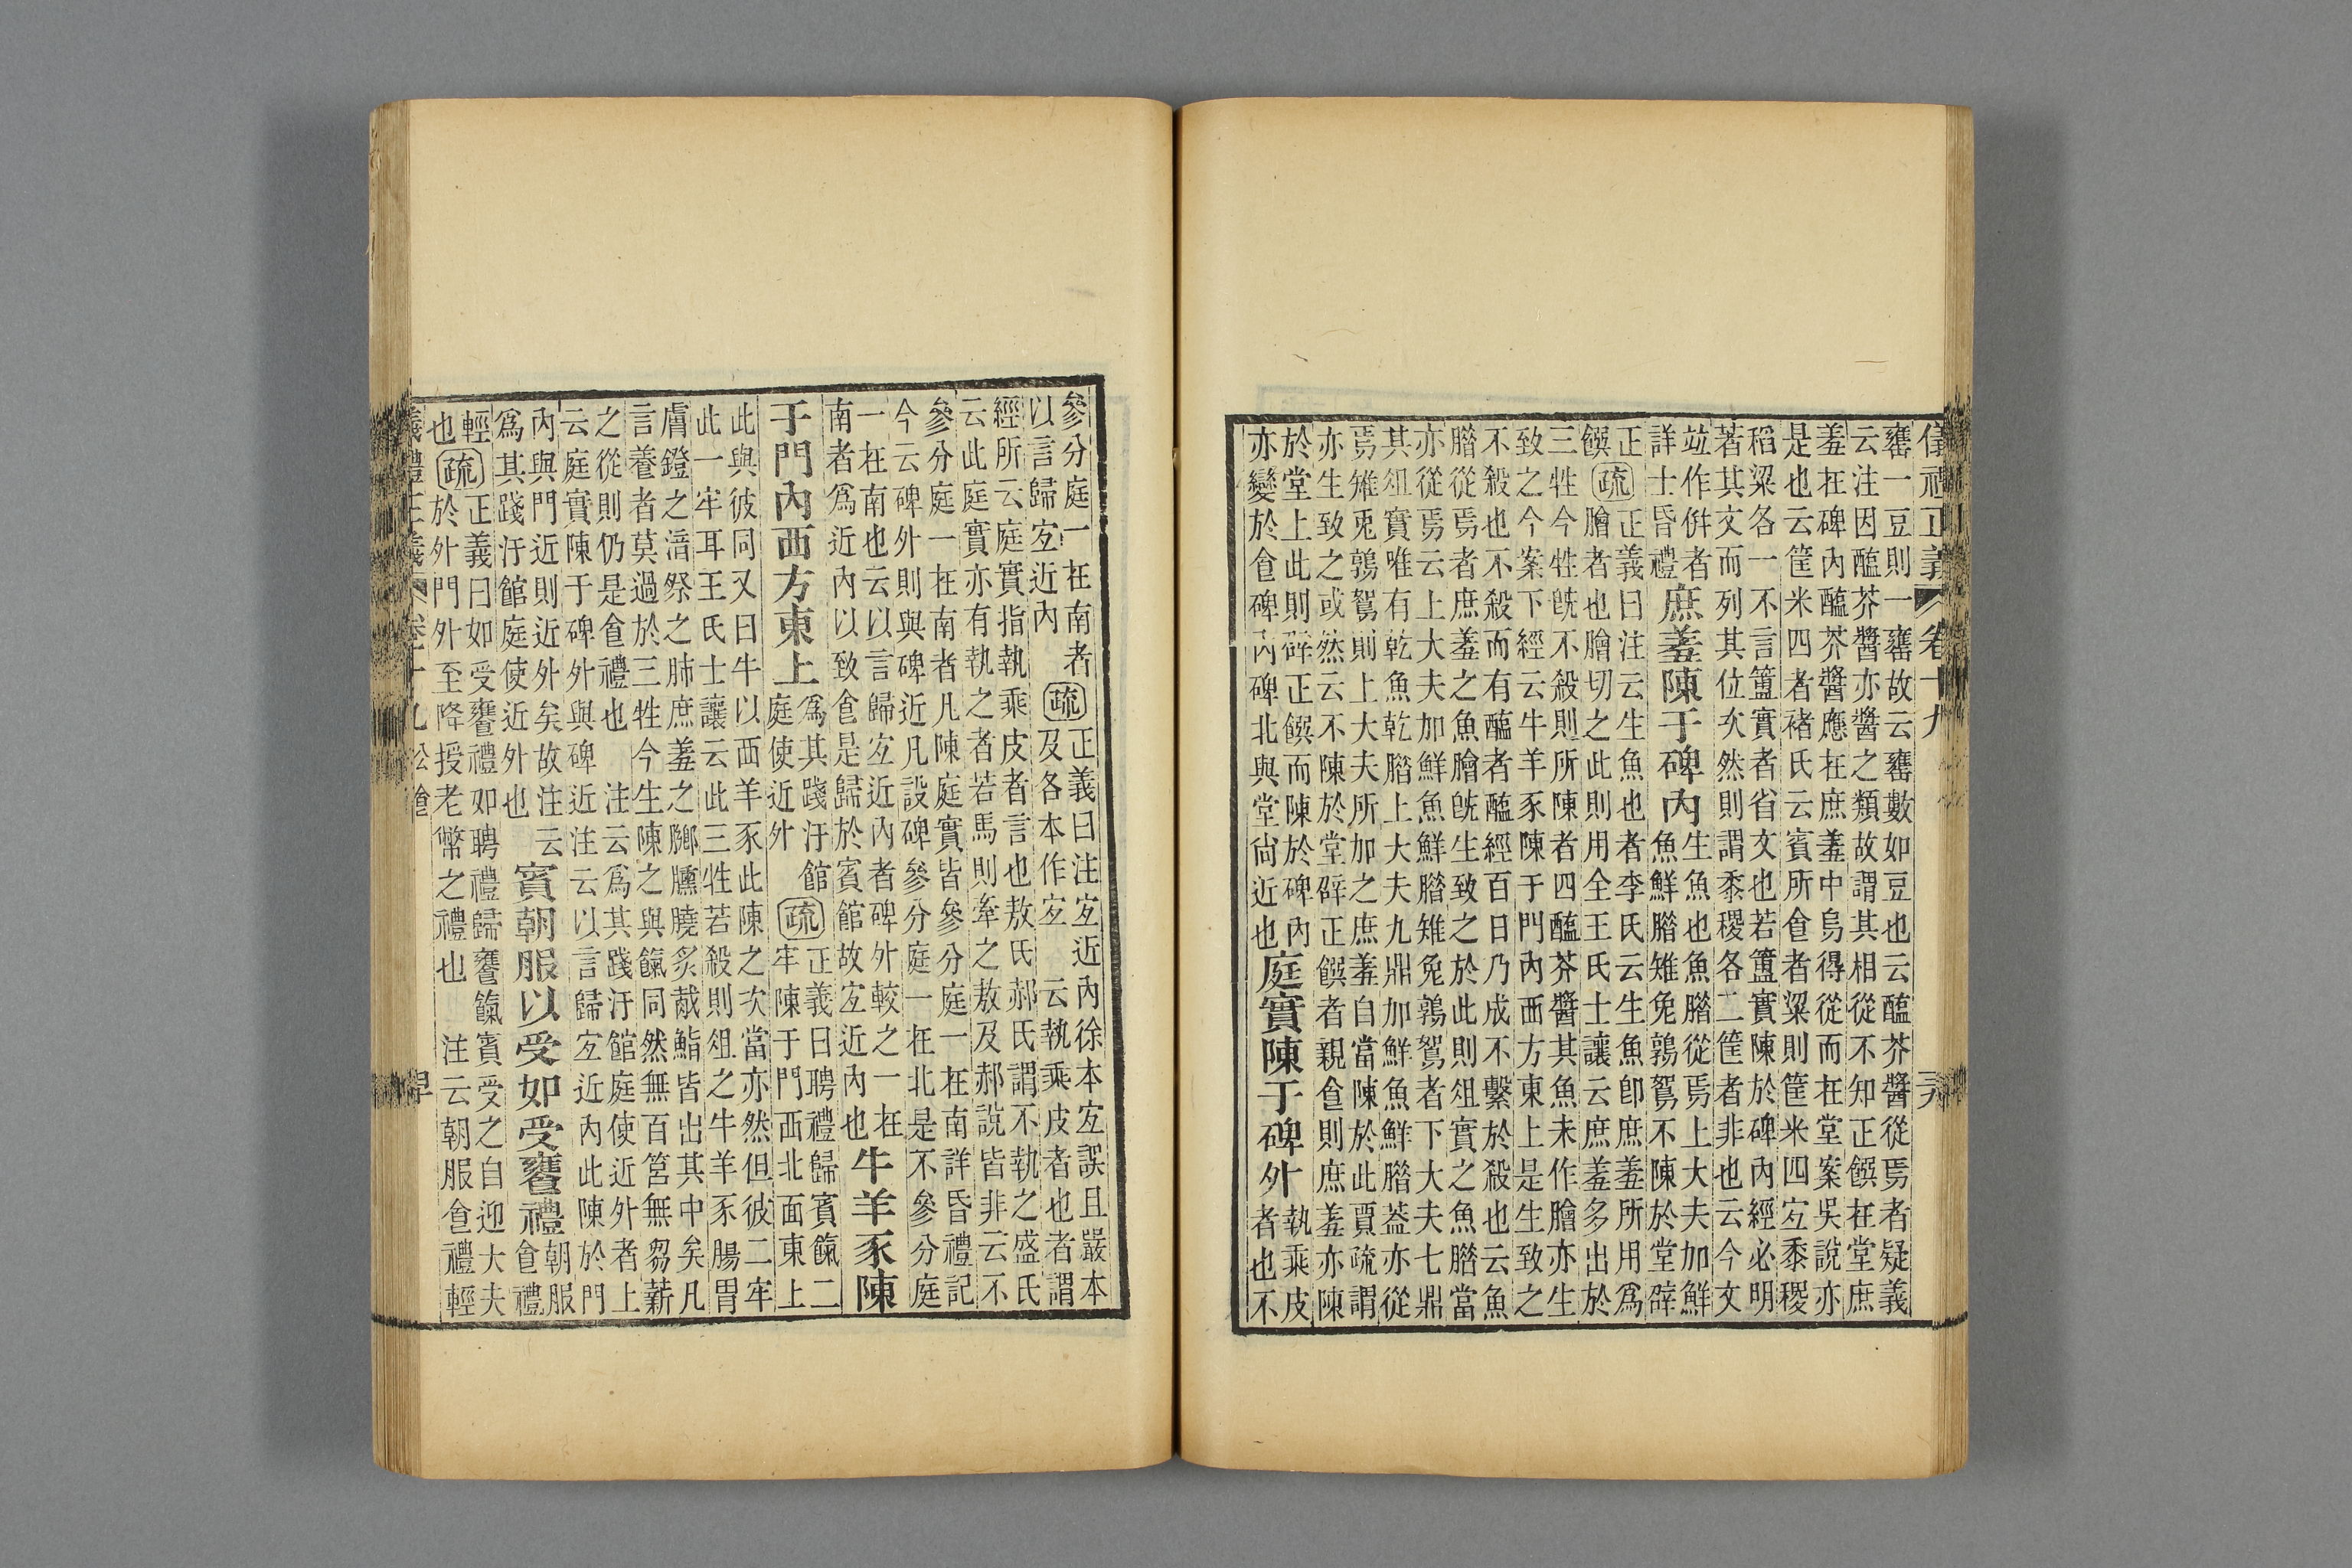 儀禮正義 卷十九 三六
甕一豆則一甕故云甕數如豆也云醢芥醬從焉者疑義
云注因醢芥醬亦醬之類故謂其相從不知正饌在堂庶
羞在碑內醢芥醬應在庶羞中烏得從而在堂案吳說亦
是也云筐米四者褚氏云賓所食者粱則筐米四宐黍稷
稻粱各一不言簠實者省文也若簠實陳於碑內經必明
著其文而列其位次然則謂黍稷各二筐者非也云今文
竝作併者
詳士昏禮
庶羞陳于碑內
生魚也魚腊從焉上大夫加鮮
魚鮮腊雉兔鶉鴽不陳於堂辟
正
饌
疏
正義曰注云生魚也者李氏云生魚卽庶羞所用爲
膾者也膾切之此則用全王氏士讓云庶羞多出於
三牲今牲旣不殺則所陳者四醢芥醬其魚未作膾亦生
致之今案下經云牛羊豕陳于門內西方東上是生致之
不殺也不殺而有醢者醢經百日乃成不繫於殺也云魚
腊從焉者庶羞之魚膾旣生致之於此則俎實之魚腊當
亦從焉云上大夫加鮮魚鮮腊雉兔鶉鴽者下大夫七鼎
其俎實唯有乾魚乾腊上大夫九鼎加鮮魚鮮腊葢亦從
焉雉兔鶉鴽則上大夫所加之庶羞自當陳於此賈疏謂
亦生致之或然云不陳於堂辟正饌者親食則庶羞亦陳
於堂上此則辟正饌而陳於碑內
亦變於食碑內碑北與堂尙近也
庭實陳于碑外
執乘皮
者也不
參分庭一在南者
以言歸宐近內
疏
正義曰注宐近內徐本宐誤且嚴本
及各本作宐 云執乘皮者也者謂
經所云庭實指執乘皮者言也敖氏郝氏謂不執之盛氏
云此庭實亦有執之者若馬則牽之敖及郝說皆非云不
參分庭一在南者凡陳庭實皆參分庭一在南詳昏禮記
今云碑外則與碑近凡設碑參分庭一在北是不參分庭
一在南也云以言歸宐近內者碑外較之一在
南者爲近內以致食是歸於賓館故宐近內也
牛羊豕陳
于門內西方東上
爲其踐汙館
庭使近外
疏
正義曰聘禮歸賓餼二
牢陳于門西北面東上
此與彼同又曰牛以西羊豕此陳之次當亦然但彼二牢
此一牢耳王氏士讓云此三牲若殺則俎之牛羊豕腸胃
膚鐙之湆祭之肺庶羞之膷臐膮炙胾鮨皆出其中矣凡
言養者莫過於三牲今生陳之與餼同然無百筥無芻薪
之從則仍是食禮也 注云爲其踐汙館庭使近外者上
云庭實陳于碑外與碑近注云以言歸宐近內此陳於門
內與門近則近外矣故注云
爲其踐汙館庭使近外也
賓朝服以受如受饔禮
朝服
食禮
輕
也
疏
正義曰如受饔禮如聘禮歸饔餼賓受之自迎大夫
於外門外至降授老幣之禮也 注云朝服食禮輕